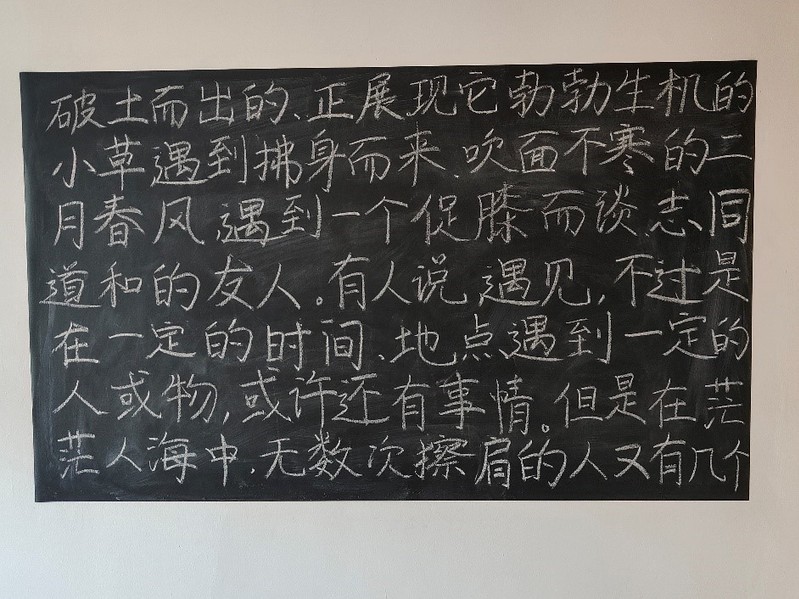 破土而出的、正展现它勃勃生机的
小草遇到拂身而来、吹面不寒的二
月春风遇到一个促膝而谈、志同
道和的友人。有人说,遇见,不过是
在一定的时间、地点遇到一定的
人或物,或许还有事情。但是在茫
茫人海中,无数次擦肩的人又有几个